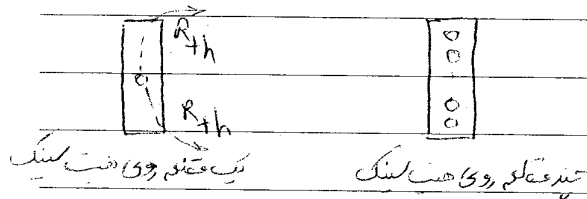 R+h
R+h
یک قطعه روی هیت سینک
چند قطعه روی هیت سینک